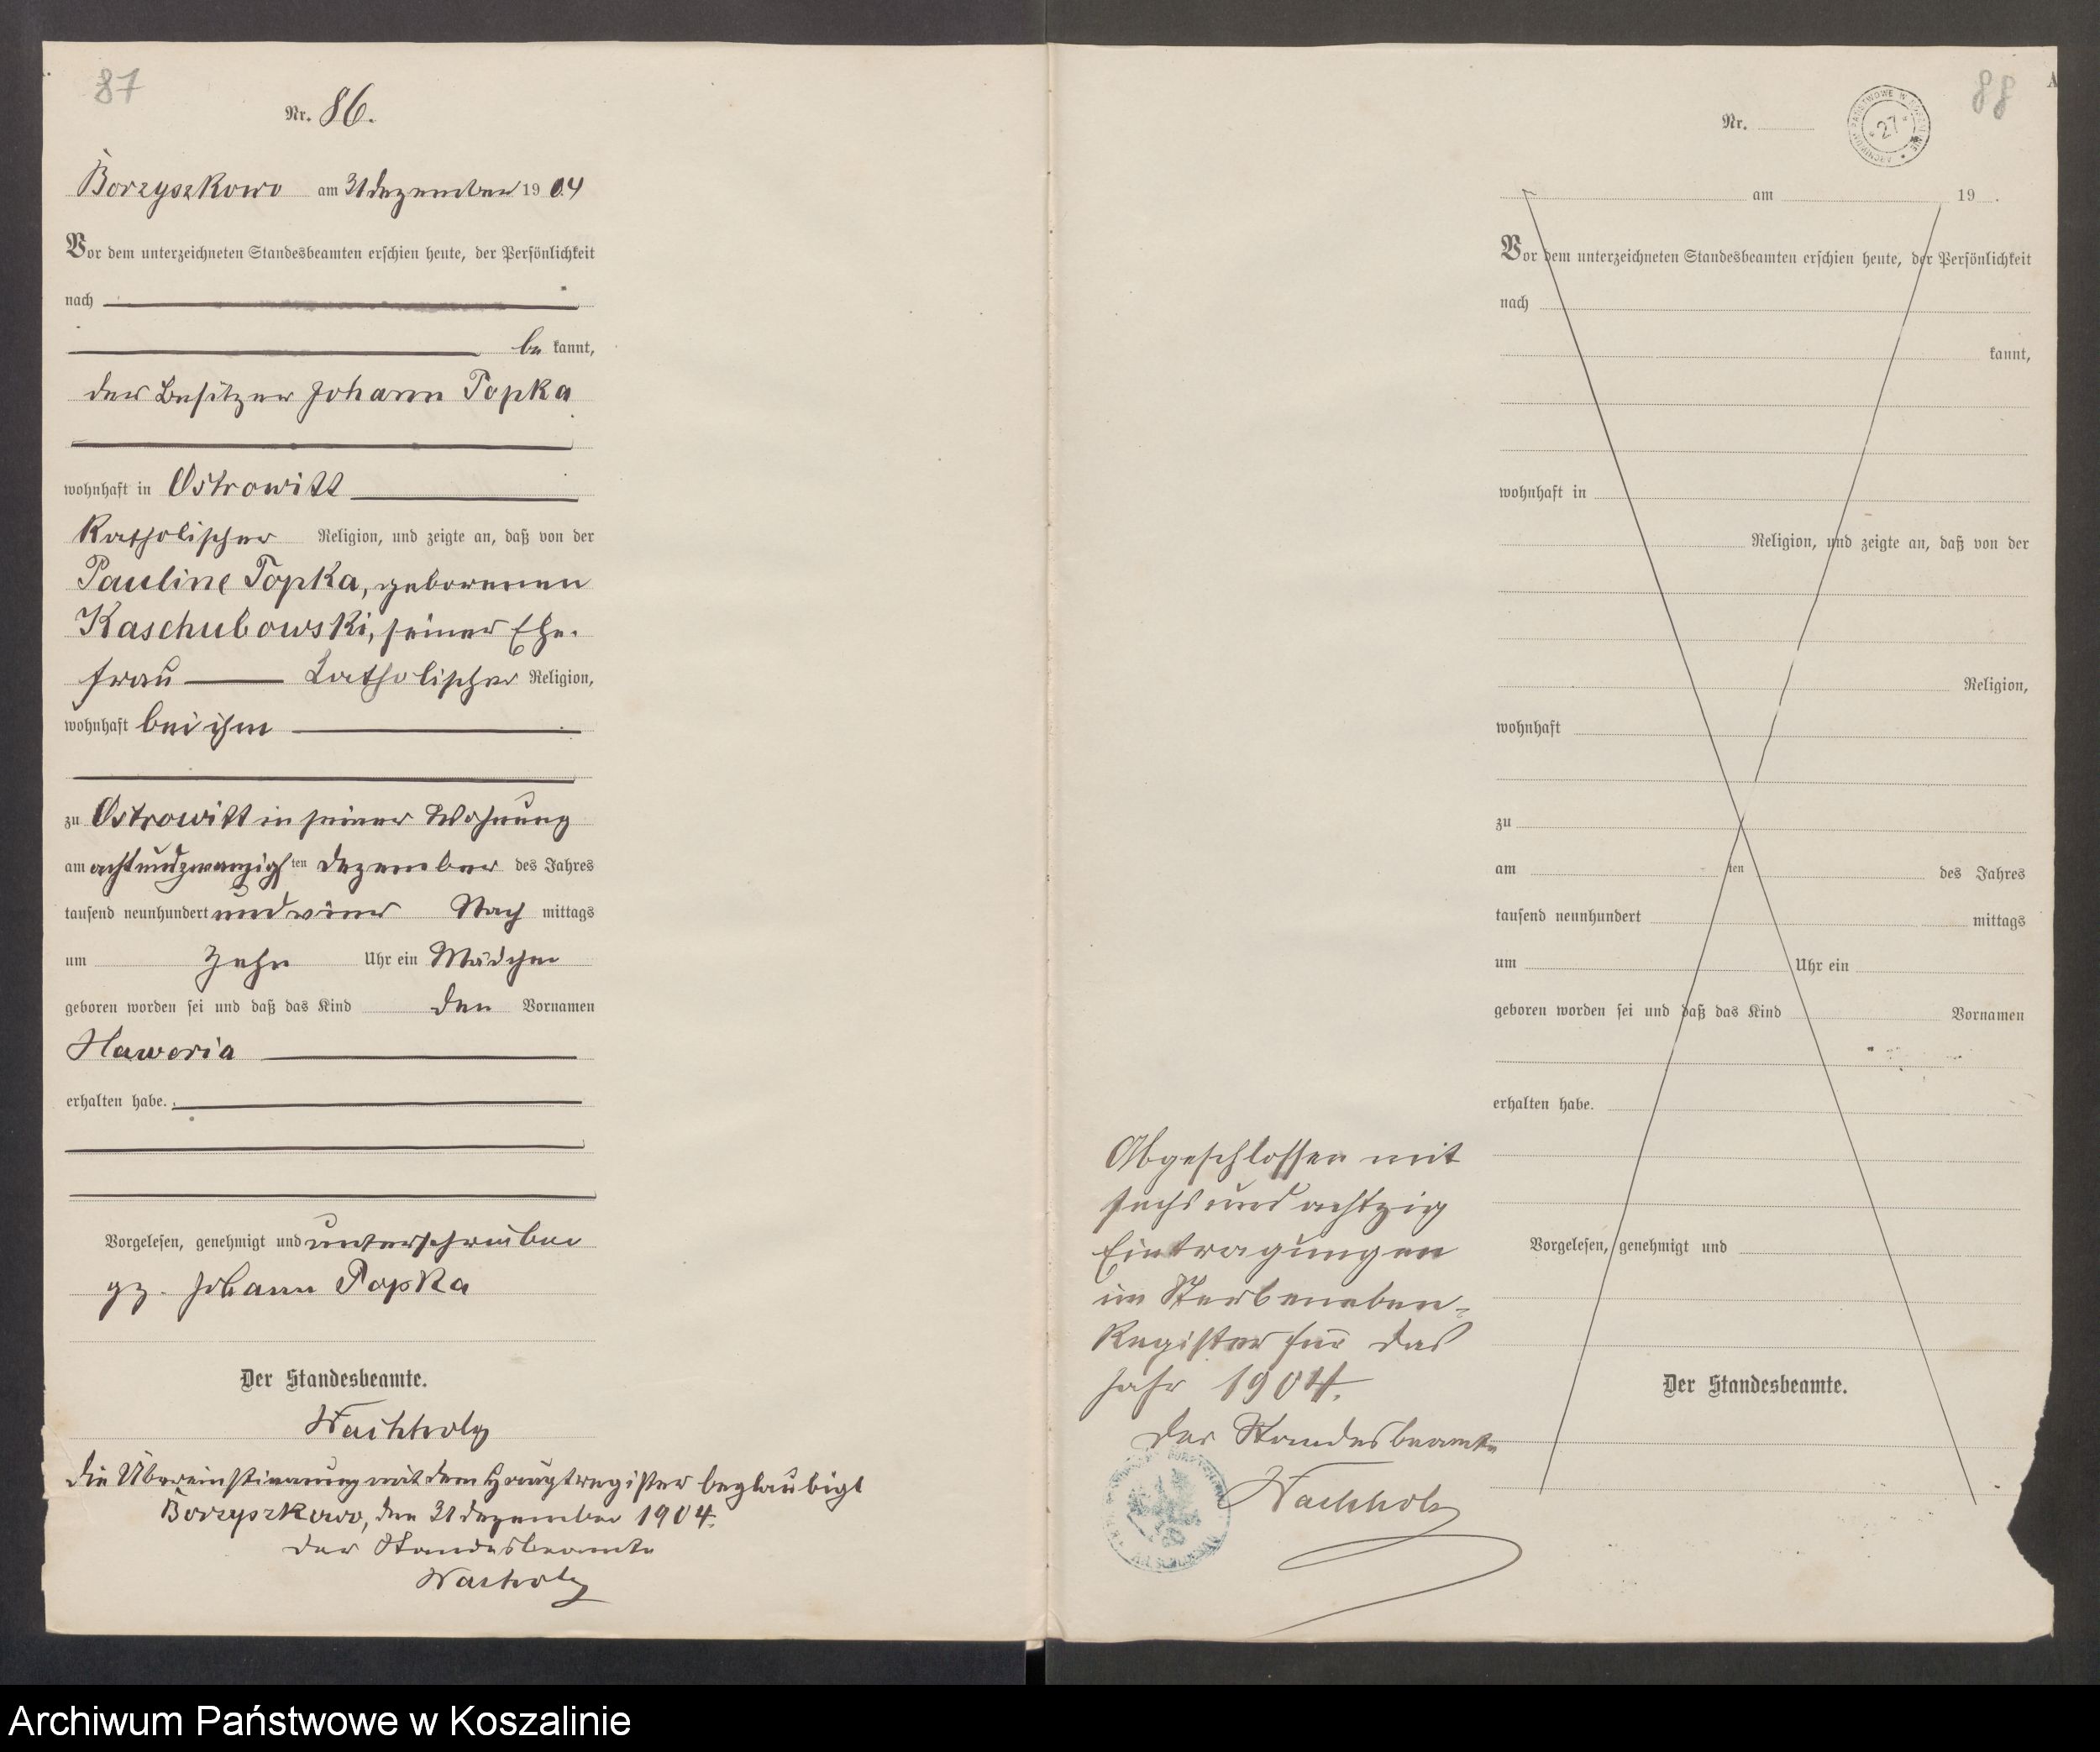 87
Nr. 86.
Borzyszkowo am 31 Dezember 1904
Vor dem unterzeichneten Standesbeamten erschien heute, der Persönlichkeit
nach
be kannt,
der Besitzer Johann Popka
wohnhaft in Ostrowitt
Katholischer Religion, und zeigte an, daß von der
Pauline Popka, geborenen
Kaschubowski, seiner Ehe-
frau katholischer Religion,
wohnhaft bei ihm
zu Ostrowitt in seiner Wohnung
am achtundzwanzigsten Dezember des Jahres
tausend neunhundert und vier Nach mittags
um zehn Uhr ein Mädchen
geboren worden sei und daß das Kind den Vornamen
erhalten habe.
Vorgelesen, genehmigt und unterschrieben
gz. Johann Popka
Der Standesbeamte.
Wachholz
Die Übereinstimmung mit dem Hauptregister beglaubigt
Borzyszkowo, den 31 Dezember 1904.
Der Standesbeamte
Wachholz
88
Nr.
27
am 19 .
Vor dem unterzeichneten Standesbeamten erschien heute, der Persönlichkeit
nach
kannt,
wohnhaft in
Religion, und zeigte an, daß von der
Religion,
wohnhaft
zu
am ten des Jahres
tausend neunhundert mittags
um Uhr ein
geboren worden sei und daß das Kind Vornamen
erhalten habe.
Vorgelesen, genehmigt und
Der Standesbeamte.
Abgeschlossen mit
sechs und achtzig
Eintragungen
im
Register für das
Jahr 1904.
Der Standesbeamte
Wachholz
Archiwum Państwowe w Koszalinie